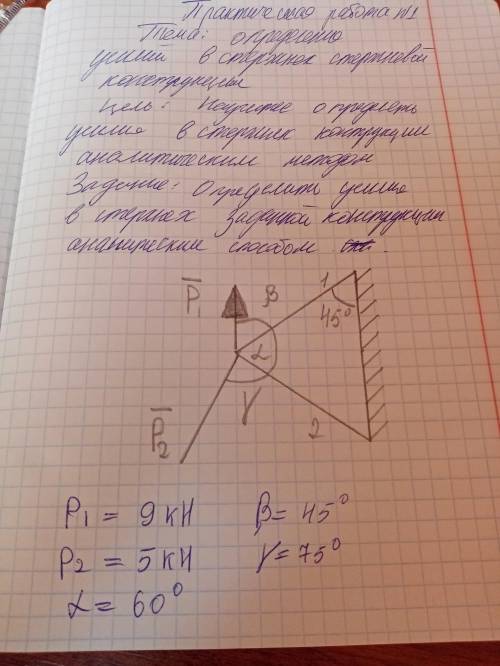 Практическая работа №1
Тема: определено
усилий в стержнек стержновой
конструкции
Цель: Научитее определеть
усилие в стержнек контрукции
аналитическим методом
Задание: Определить усилие
в стержнех заданной конструкции
способом
P₁ β 1
45°
α
P₂ γ 2
P1 = 9 кН β = 45°
P2 = 5 кН γ = 75°
α = 60°